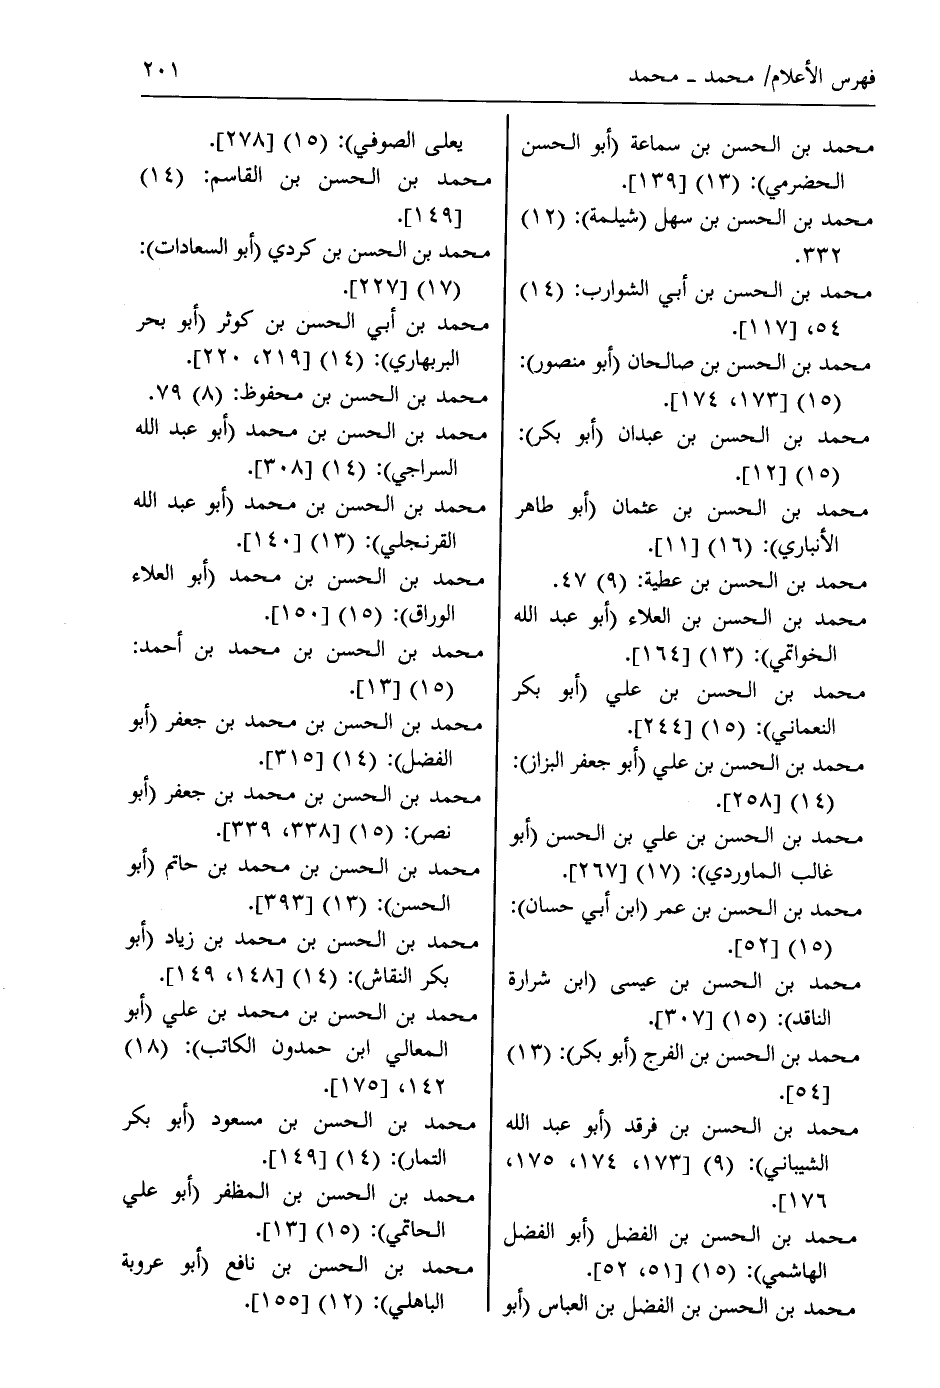 فهرس الأعلام/ محمد ـ محمد
٢٠١
محمد بن الحسن بن سماعة (أبو الحسن
الحضرمي): (١٣) [١٣٩].
محمد بن الحسن بن سهل (شيلمة): (١٢)
٣٣٢.
محمد بن الحسن بن أبي الشوارب: (١٤)
٥٤، [١١٧].
محمد بن الحسن بن صالحان (أبو منصور):
(١٥) [١٧٣، ١٧٤].
محمد بن الحسن بن عبدان (أبو بكر):
(١٥) [١٢].
محمد بن الحسن بن عثمان (أبو طاهر
الأنباري): (١٦) [١١].
محمد بن الحسن بن عطية: (٩) ٤٧.
محمد بن الحسن بن العلاء (أبو عبد الله
الخواتمي): (١٣) [١٦٤].
محمد بن الحسن بن علي (أبو بكر
النعماني): (١٥) [٢٤٤].
محمد بن الحسن بن علي (أبو جعفر البزاز):
(١٤) [٢٥٨].
محمد بن الحسن بن علي بن الحسن (أبو
غالب الماوردي): (١٧) [٢٦٧].
محمد بن الحسن بن عمر (ابن أبي حسان):
(١٥) [٥٢].
محمد بن الحسن بن عيسى (ابن شرارة
الناقد): (١٥) [٣٠٧].
محمد بن الحسن بن الفرج (أبو بكر): (١٣)
[٥٤].
محمد بن الحسن بن فرقد (أبو عبد الله
الشيباني): (٩) [١٧٣، ١٧٤، ١٧٥،
١٧٦].
محمد بن الحسن بن الفضل (أبو الفضل
الهاشمي): (١٥) [٥١، ٥٢].
محمد بن الحسن بن الفضل بن العباس (أبو
يعلى الصوفي): (١٥) [٢٧٨].
محمد بن الحسن بن القاسم: (١٤)
[١٤٩].
محمد بن الحسن بن كردي (أبو السعادات):
(١٧) [٢٢٧].
محمد بن أبي الحسن بن كوثر (أبو بحر
البربهاري): (١٤) [٢١٩، ٢٢٠].
محمد بن الحسن بن محفوظ: (٨) ٧٩.
محمد بن الحسن بن محمد (أبو عبد الله
السراجي): (١٤) [٣٠٨].
محمد بن الحسن بن محمد (أبو عبد الله
القرنجلي): (١٣) [١٤٠].
محمد بن الحسن بن محمد (أبو العلاء
الوراق): (١٥) [١٥٠].
محمد بن الحسن بن محمد بن أحمد:
(١٥) [١٣].
محمد بن الحسن بن محمد بن جعفر (أبو
الفضل): (١٤) [٣١٥].
محمد بن الحسن بن محمد بن جعفر (أبو
نصر): (١٥) [٣٣٨، ٣٣٩].
محمد بن الحسن بن محمد بن حاتم (أبو
الحسن): (١٣) [٣٩٣].
محمد بن الحسن بن محمد بن زياد (أبو
بكر النقاش): (١٤) [١٤٨، ١٤٩].
محمد بن الحسن بن محمد بن علي (أبو
المعالي ابن حمدون الكاتب): (١٨)
١٤٢، [١٧٥].
محمد بن الحسن بن مسعود (أبو بكر
التمار): (١٤) [١٤٩].
محمد بن الحسن بن المظفر (أبو علي
الحاتمي): (١٥) [١٣].
محمد بن الحسن بن نافع (أبو عروبة
الباهلي): (١٢) [١٥٥].